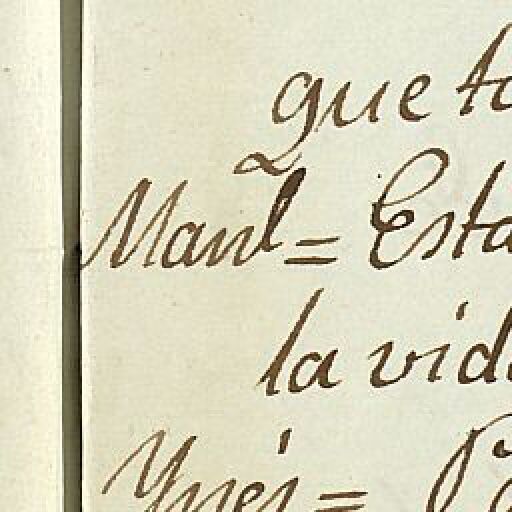 que to
Manl = Esta
la vida
Ynés =